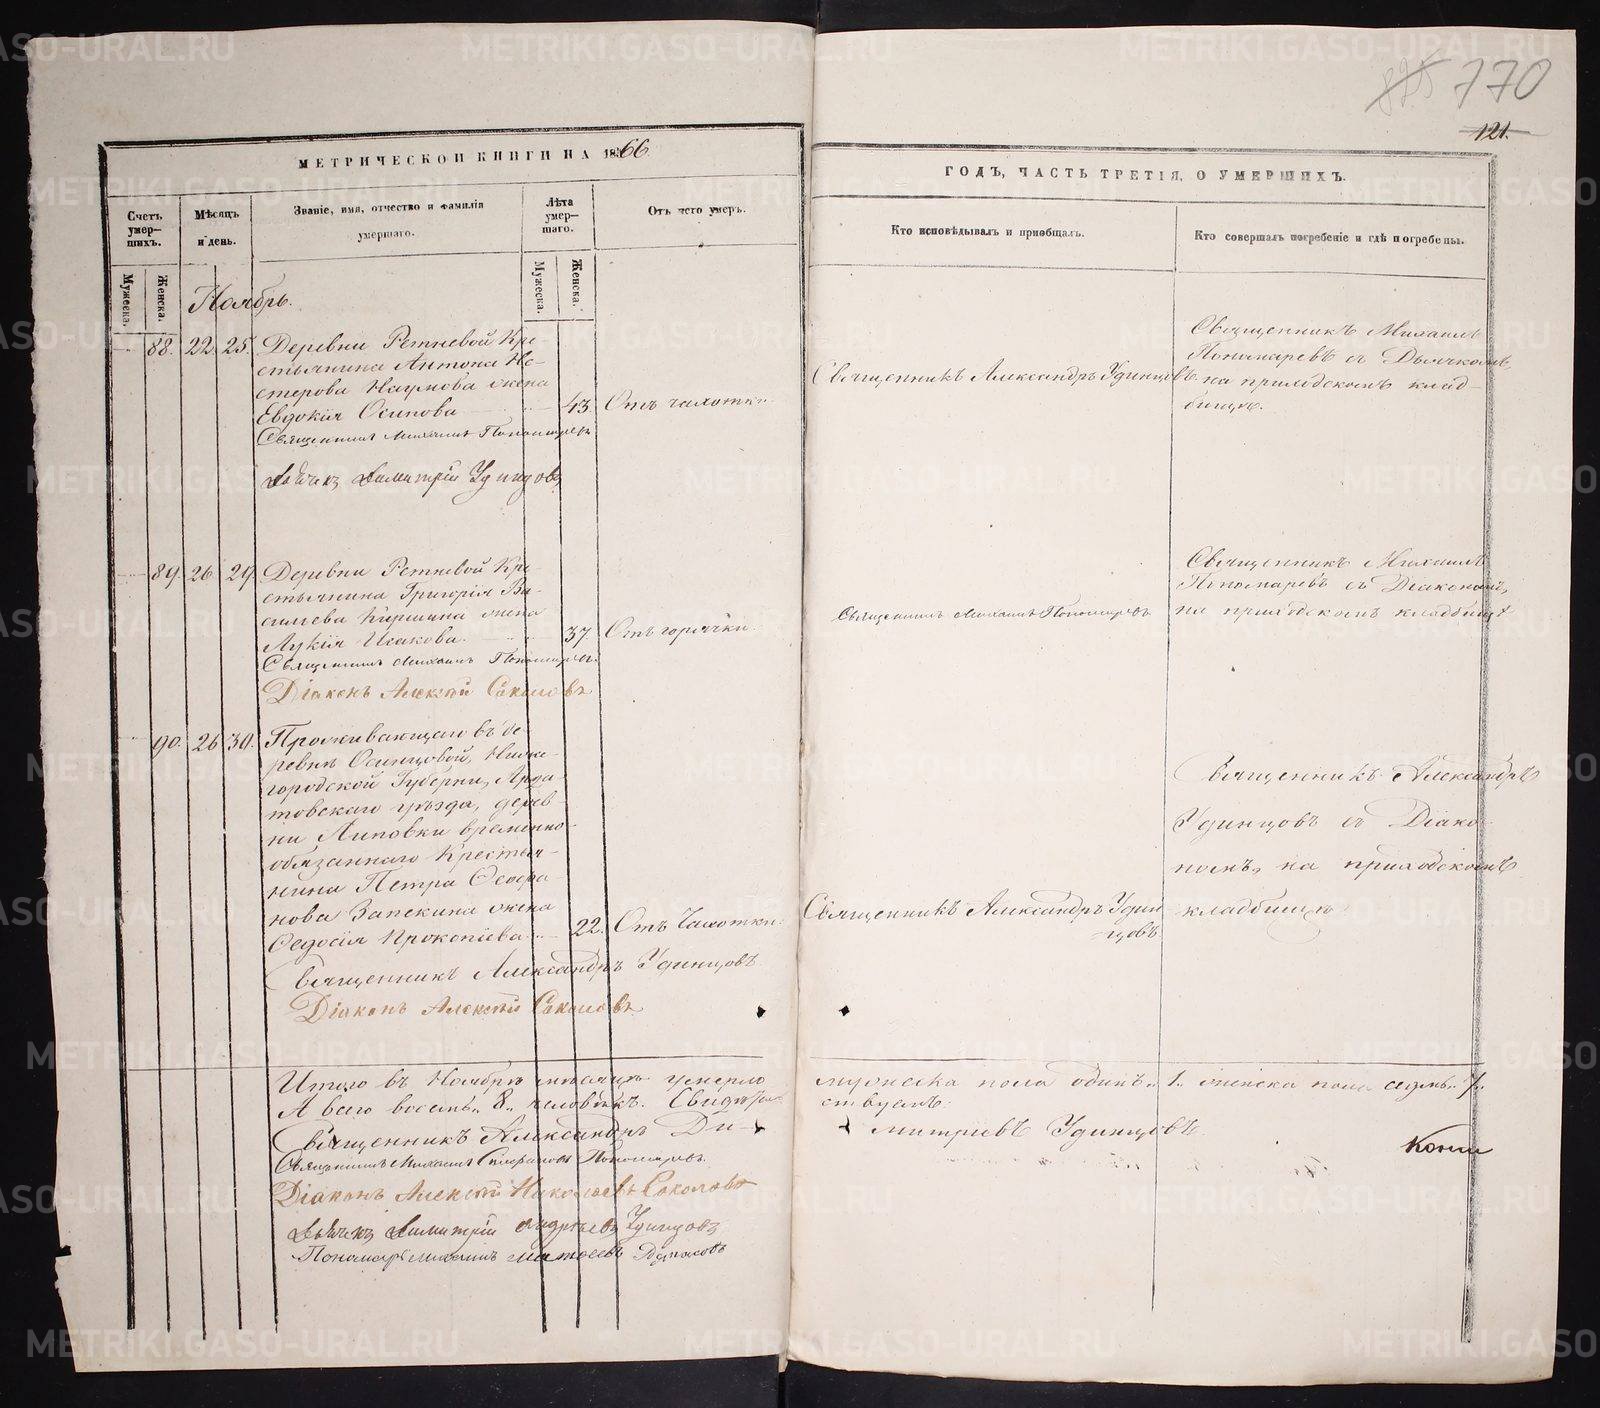 825 770
121.
МЕТРИЧЕСКОЙ КНИГИ НА 1866
ГОДЪ, ЧАСТЬ ТРЕТІЯ, О УМЕРШИХЪ.
Счетъ умер-
шихъ.
Мѣсяцъ
и день.
Званіе, имя, отчество и фамилія
умершаго.
Лѣта
умер-
шаго.
Отъ чего умеръ.
Кто исповѣдывалъ и пріобщалъ.
Кто совершалъ погребеніе и гдѣ погребены.
Мужеска.
Женска.
Мужеска.
Женска.
Ноябрь.
88. 22. 25. Деревни Ретневой Кре-
стьянина Антона Не-
стерова Наумова жена
Евдокія Осипова 43. Отъ чахотки.
Священникъ Михаилъ Пономаревъ
Дьячекъ Димитрій Удинцовъ
Священникъ Александръ Удинцовъ
Священникъ Михаилъ
Пономаревъ съ Дьячкомъ,
на приходскомъ клад-
бищѣ.
89. 26 29. Деревни Ретневой Кре-
стьянина Григорія Ва-
сильева Киршина жена
Лукія Исакова. 37. Отъ горячки.
Священникъ Михаилъ Пономаревъ.
Діаконъ Алексѣй Соколовъ
Священникъ Михаилъ Пономаревъ
Священникъ Михаилъ
Пономаревъ съ Діакономъ,
на приходскомъ кладбищѣ
90. 26 30. Проживающаго въ де-
ревнѣ Осинцовой, Ниже-
городской Губерніи, Арда-
товскаго уѣзда, дерев-
ни Липовки временно-
обязаннаго Крестья-
нина Петра Ѳеофа-
нова Запекина жена
Ѳедосія Прокопіева 22. Отъ Чахотки.
Священникъ Александръ Удинцовъ
Діаконъ Алексѣй Соколовъ
Священникъ Александръ Удин-
цовъ
Священникъ Александръ
Удинцовъ съ Діако-
номъ, на приходскомъ
кладбищѣ
Итого въ Ноябрѣ мѣсяцѣ умерло мужеска пола одинъ „1„ женска пола седмь „7„
А всего восемь „8„ человѣкъ. Свидѣтель-ствуемъ:
Священникъ Александръ Ди-митріевъ Удинцовъ.
Священникъ Михаилъ Пономаревъ.
Діаконъ Алексѣй Николаевъ Соколовъ
Дьячекъ Димитрій Андреевъ Удинцовъ
Пономарь Михаилъ
METRIKI.GASO-URAL.RU